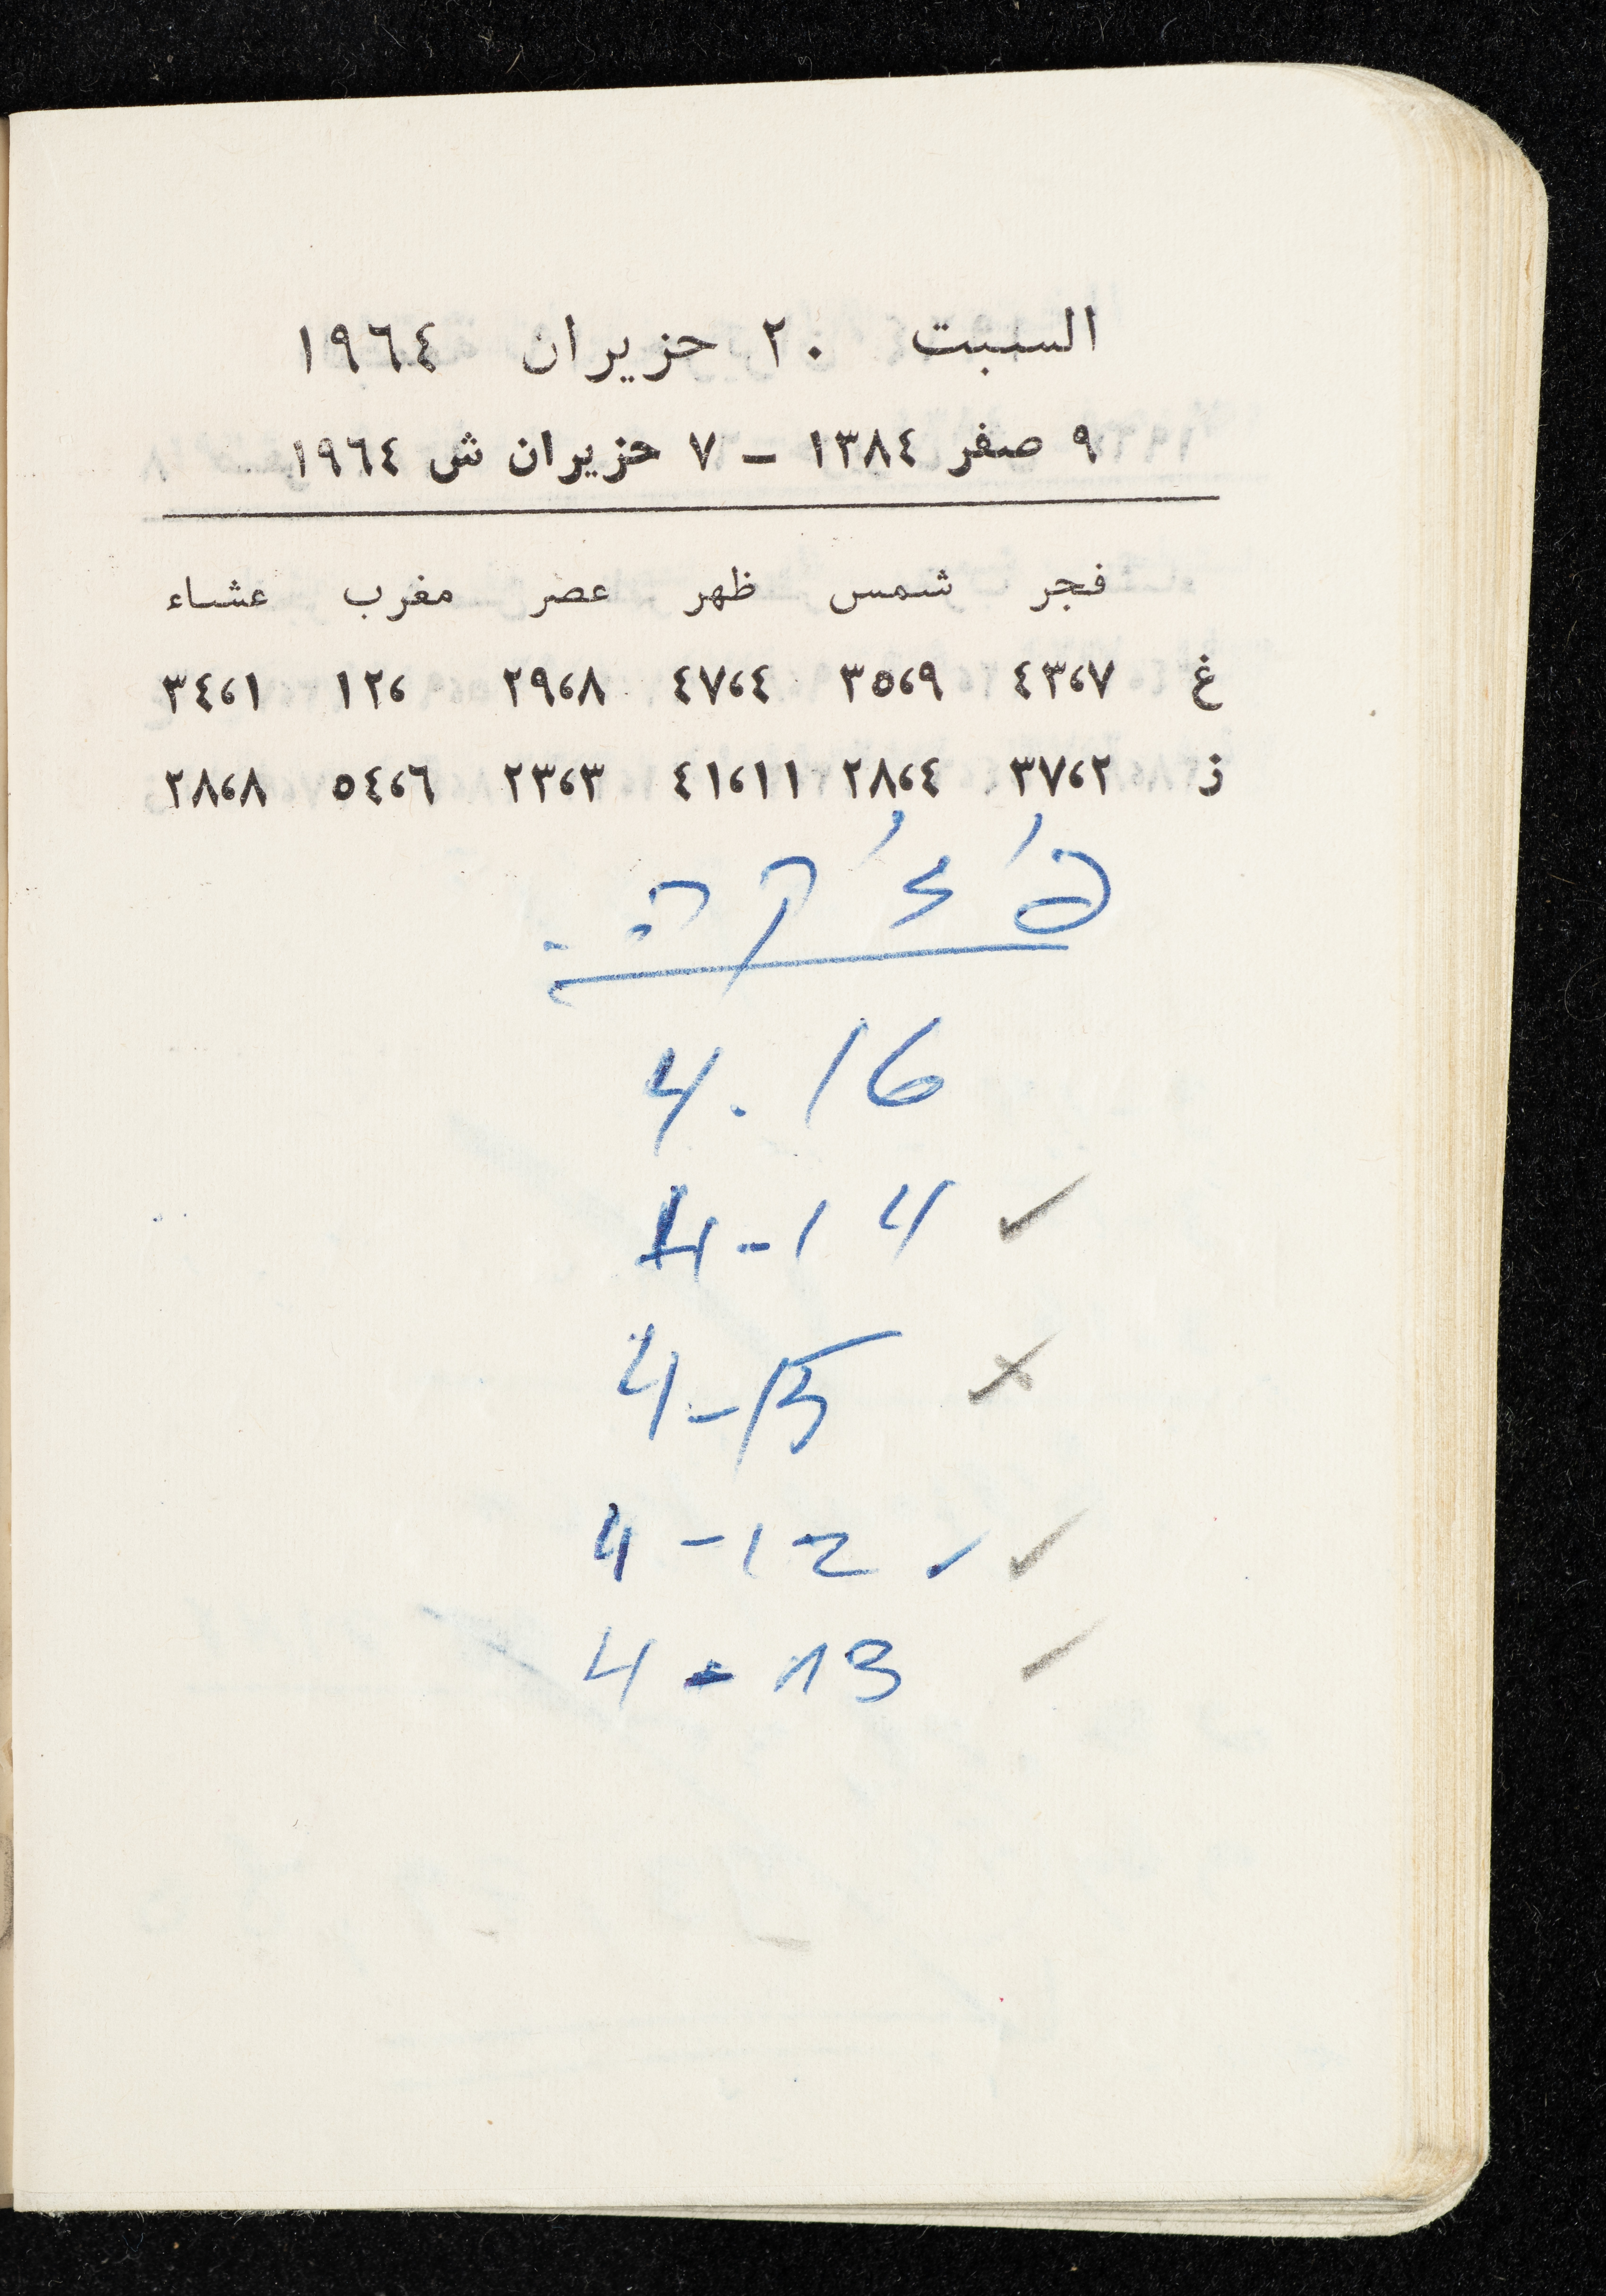 السبت ٢٠ حزيران ١٩٦٤
٩ صفر ١٣٨٤ – ٧ حزيران ش ١٩٦٤
فجر شمس ظهر عصر مغرب عشاء
غ ٤٣،٧ ٣٥،٩ ٤٧،٤ ٢٩،٨ ١٢، ٣٤،١
ز ٣٧،٢ ٢٨،٤ ٤١،١١ ٢٣،٣ ٥٤،٦ ٢٨،٨
4.16
4-14 ✓
4-15 ×
4-12 ✓ ✓
4-13 ✓